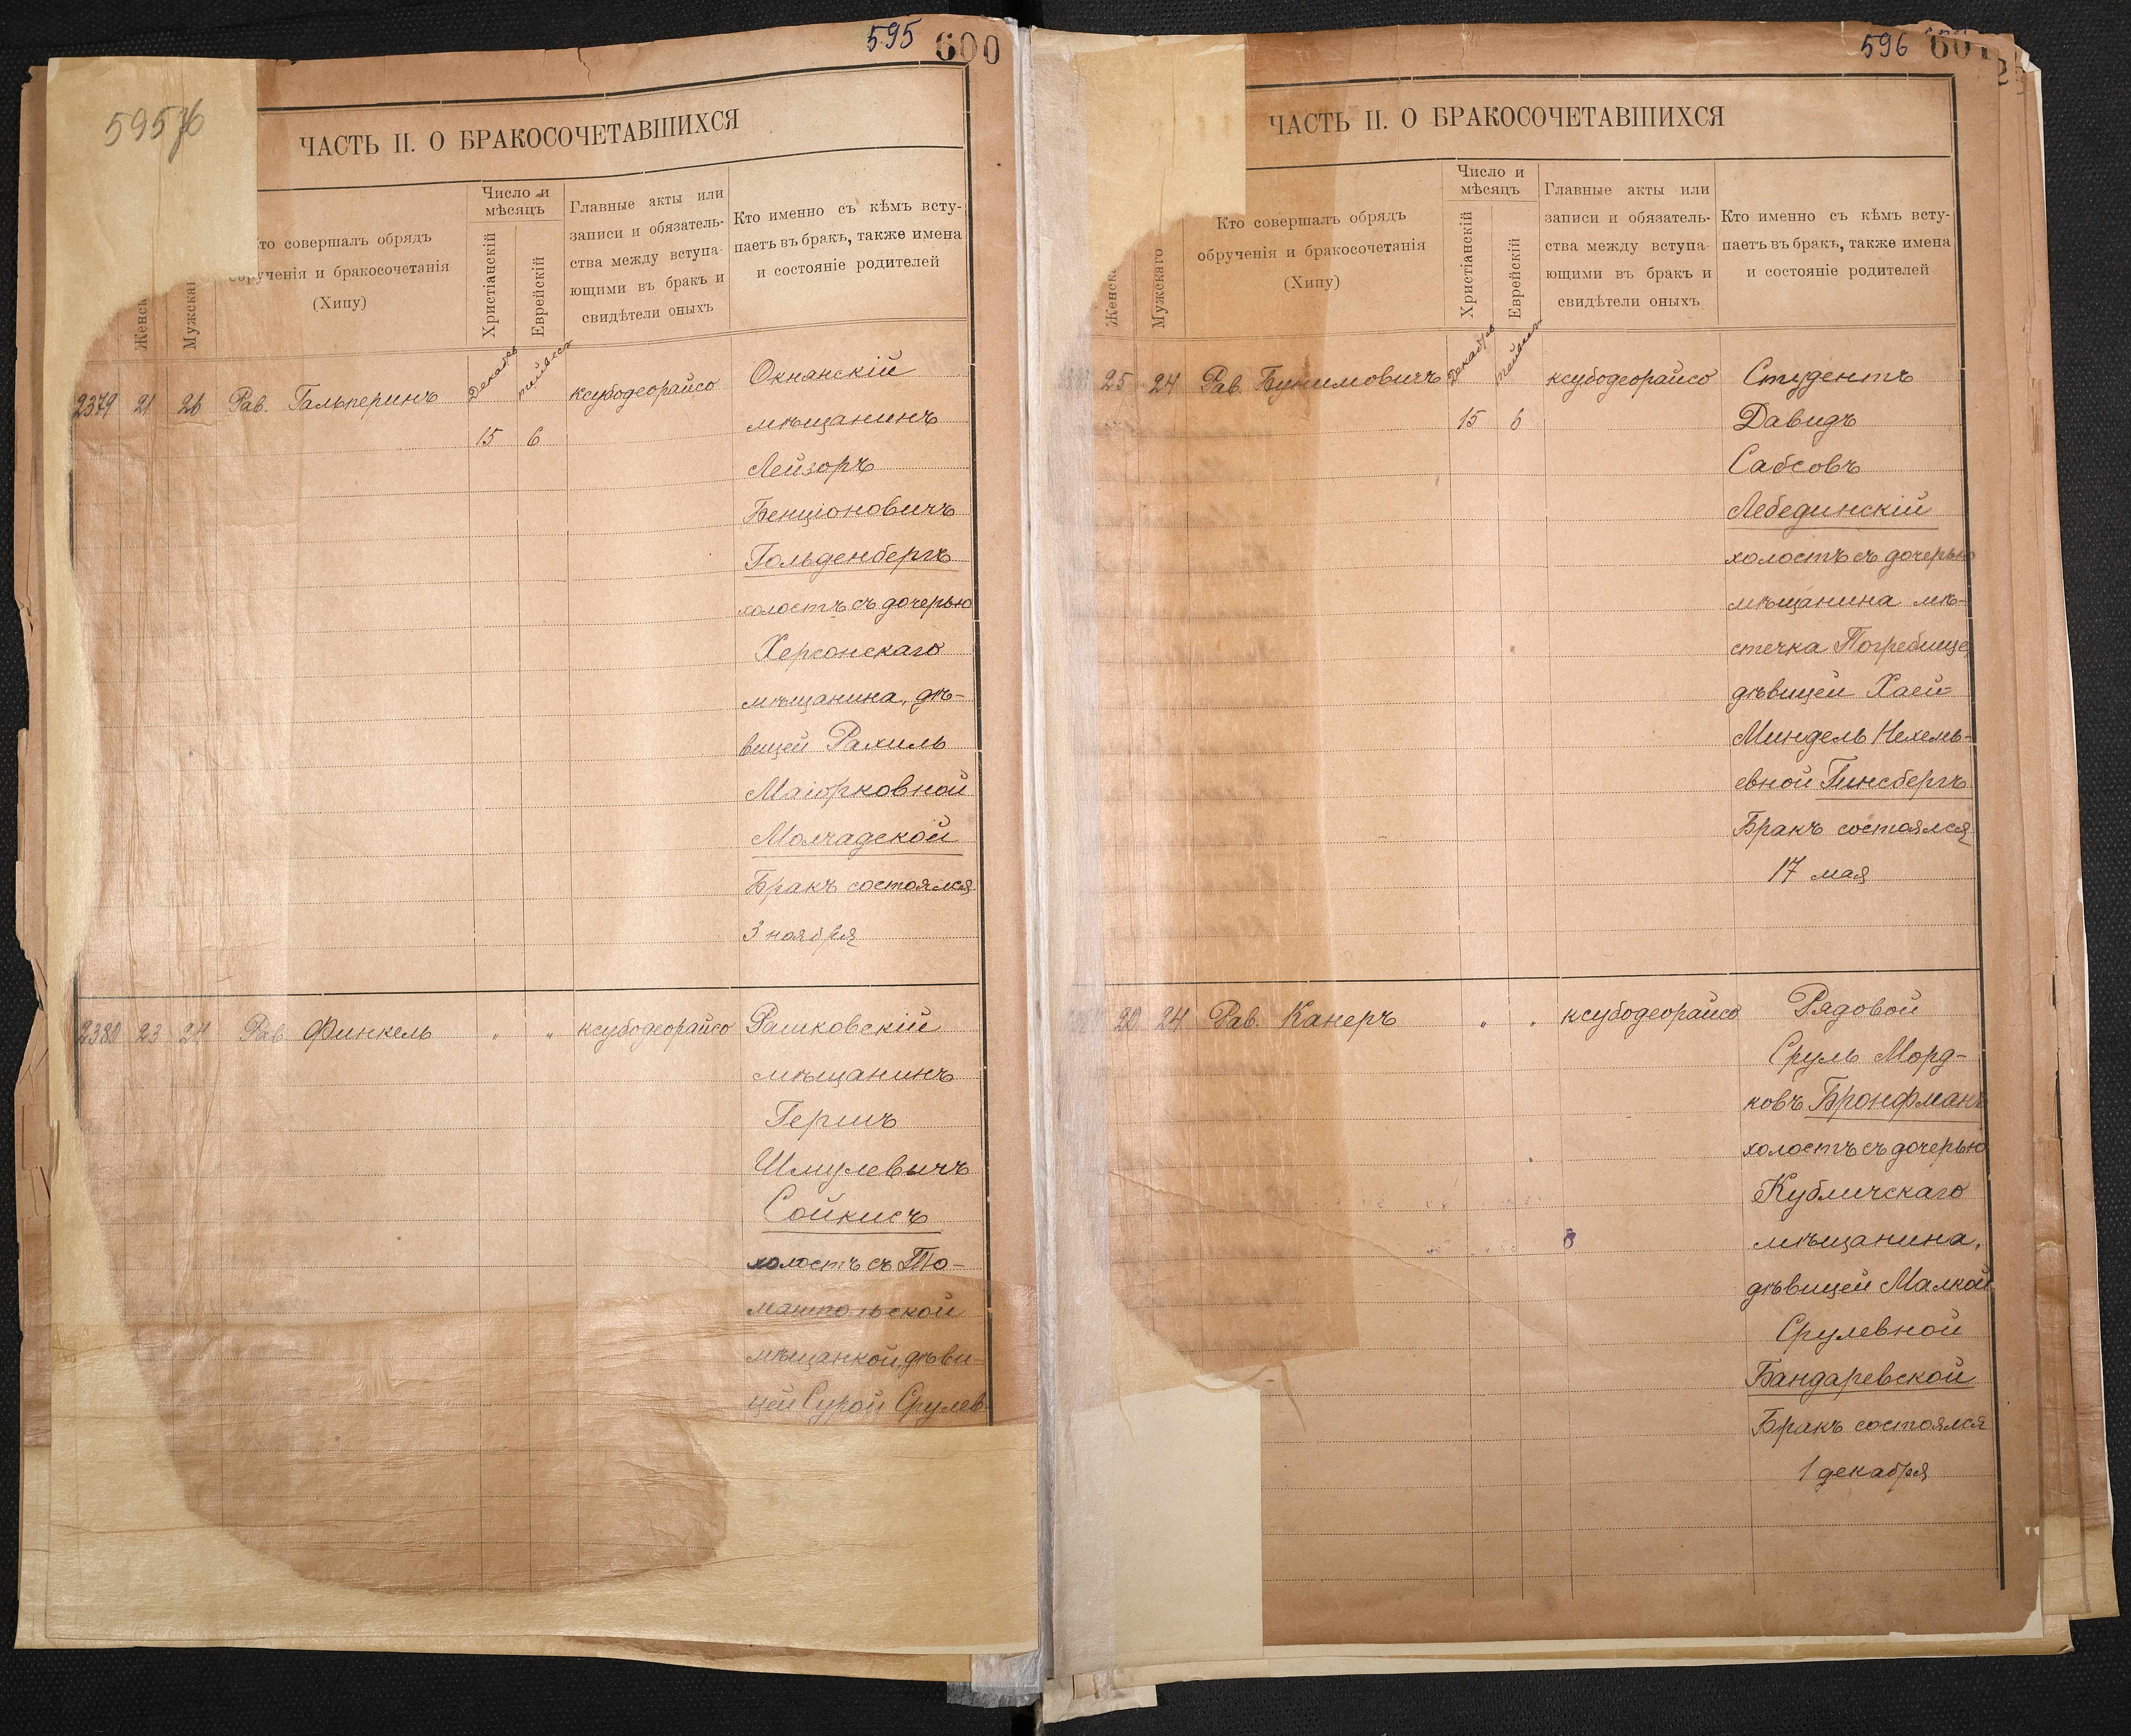 595 600
595 об
ЧАСТЬ II. О БРАКОСОЧЕТАВШИХСЯ
Женск
Мужскаг
Кто совершалъ обрядъ
обрученія и бракосочетанія
(Хипу)
Число и
мѣсяцъ
Христіанскій
Еврейскій
Главные акты или
записи и обязатель-
ства между вступа-
ющими въ бракъ и
свидѣтели оныхъ
Кто именно съ кѣмъ всту-
паетъ въ бракъ, также имена
и состояніе родителей
2379 21 26 Рав. Гальперинъ Декабрь тейвесъ ксубодеорайсо Окнанскій
15 6 мѣщанинъ
Лейзоръ
Бенціоновичъ
Гольденбергъ
холостъ съ дочерью
Херсонскаго
мѣщанина, дѣ-
вицей Рахиль
Маіорковной
Молчадской
Бракъ состоялся
3 ноября
2380 23 24 Рав. Финкель " " ксубодеорайсо Рашковскій
мѣщанинъ
Гершъ
Шмулевичъ
Сойкисъ
холостъ съ То-
машпольской
мѣщанкой, дѣви-
цей Сурой Срулев-
596 601
ЧАСТЬ II. О БРАКОСОЧЕТАВШИХСЯ
Женска
Мужскаго
Кто совершалъ обрядъ
обрученія и бракосочетанія
(Хипу)
Число и
мѣсяцъ
Христіанскій
Еврейскій
Главные акты или
записи и обязатель-
ства между вступа-
ющими въ бракъ и
свидѣтели оныхъ
Кто именно съ кѣмъ всту-
паетъ въ бракъ, также имена
и состояніе родителей
25 24 Рав. Бунимовичъ Декабрь тейвесъ ксубодеорайсо Студентъ
15 6 Давидъ
Сабсовъ
Лебединскій
холостъ съ дочерью
мѣщанина мѣ-
стечка Погребище,
дѣвицей Хаей
Миндель Нехемь-
евной Гинсбергъ
Бракъ состоялся
17 мая
20 24 Рав. Канеръ " " ксубодеорайсо Рядовой
Сруль Морд-
ковъ Бронфманъ
холостъ съ дочерью
Кубличскаго
мѣщанина,
дѣвицей Малкой
Срулевной
Бандаревской
Бракъ состоялся
1 декабря